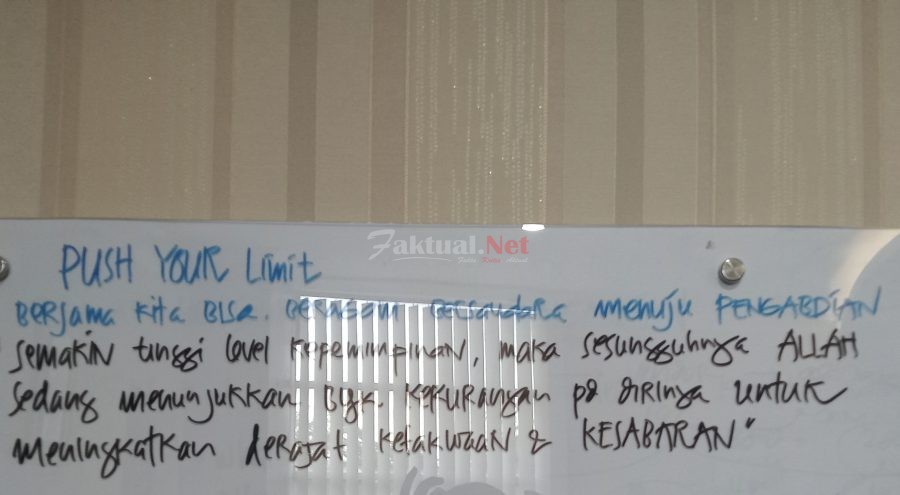 Faktual.Net
PUSH YOUR Limit
BERSama Kita BISa. BERAGam BERSaudaRa menuju PENGABDIAN
semakin tinggi level kepemimpinan, maka sesungguhnya ALLAH
sedang menunjukkan byk. kekurangan pd dirinya untuk
meningkatkan derajat ketakwaan & KESABARAN"